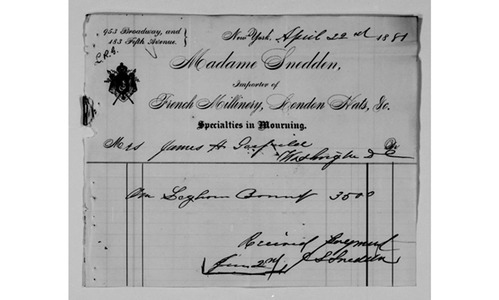 953 Broadway, and
183 Fifth Avenue.
New York, April 22nd 1881
Madame Snedden,
Importer of
French Millinery, London Hats, &c.
Specialties in Mourning.
Mrs James A Garfield
Washington D C
Dr
One Leghorn Bonnet 35 00
Received Payment
June 2nd S Snedden